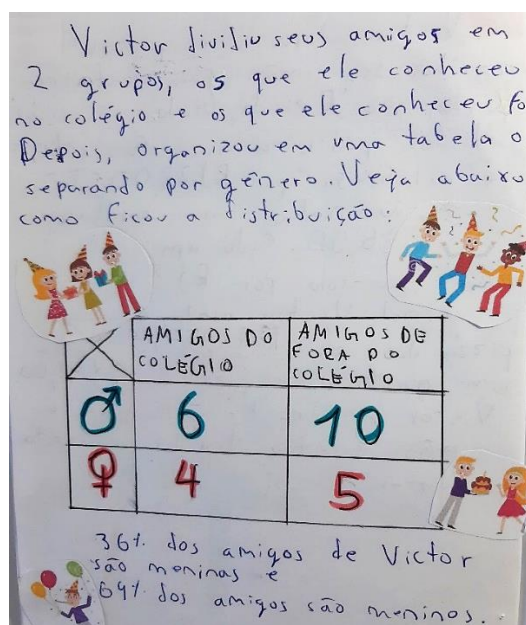 Victor dividiu seus amigos em
2 grupos, os que ele conheceu
no colégio e os que ele conheceu fo
Depois, organizou em uma tabela o
separando por gênero. Veja abaixo
como ficou a distribuição:
AMIGOS DO COLÉGIO
AMIGOS DE FORA DO COLÉGIO
♂ 6 10
♀ 4 5
36% dos amigos de Victor
são meninas e
64% dos amigos são meninos.